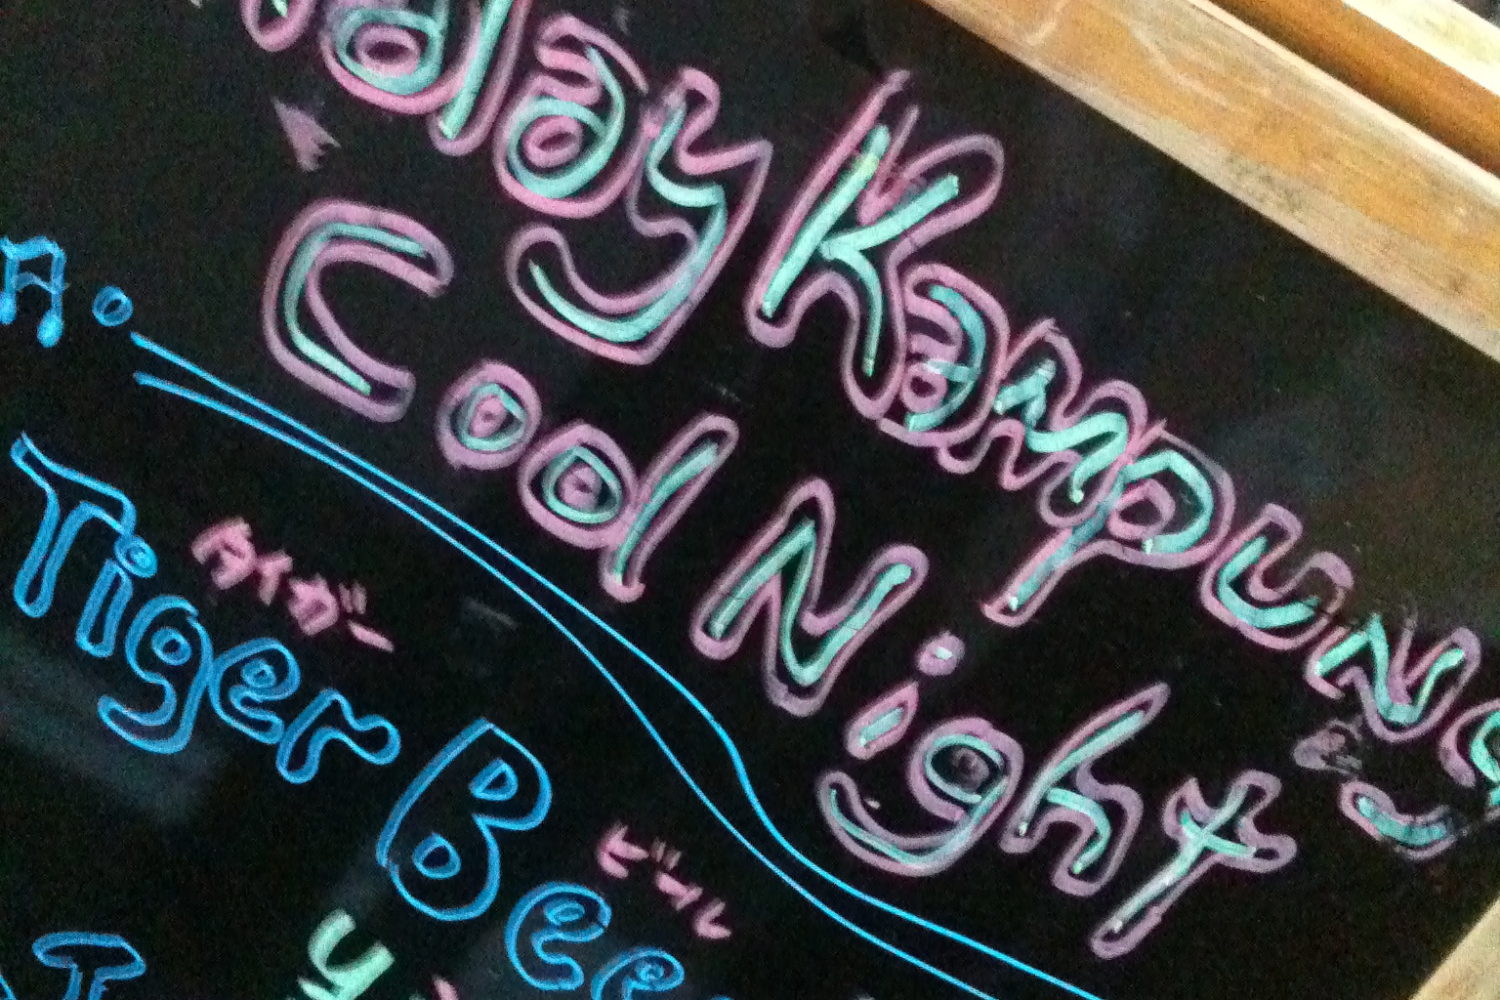 alay Kampung
Cood Night
タイガー ビール
Tiger Bee